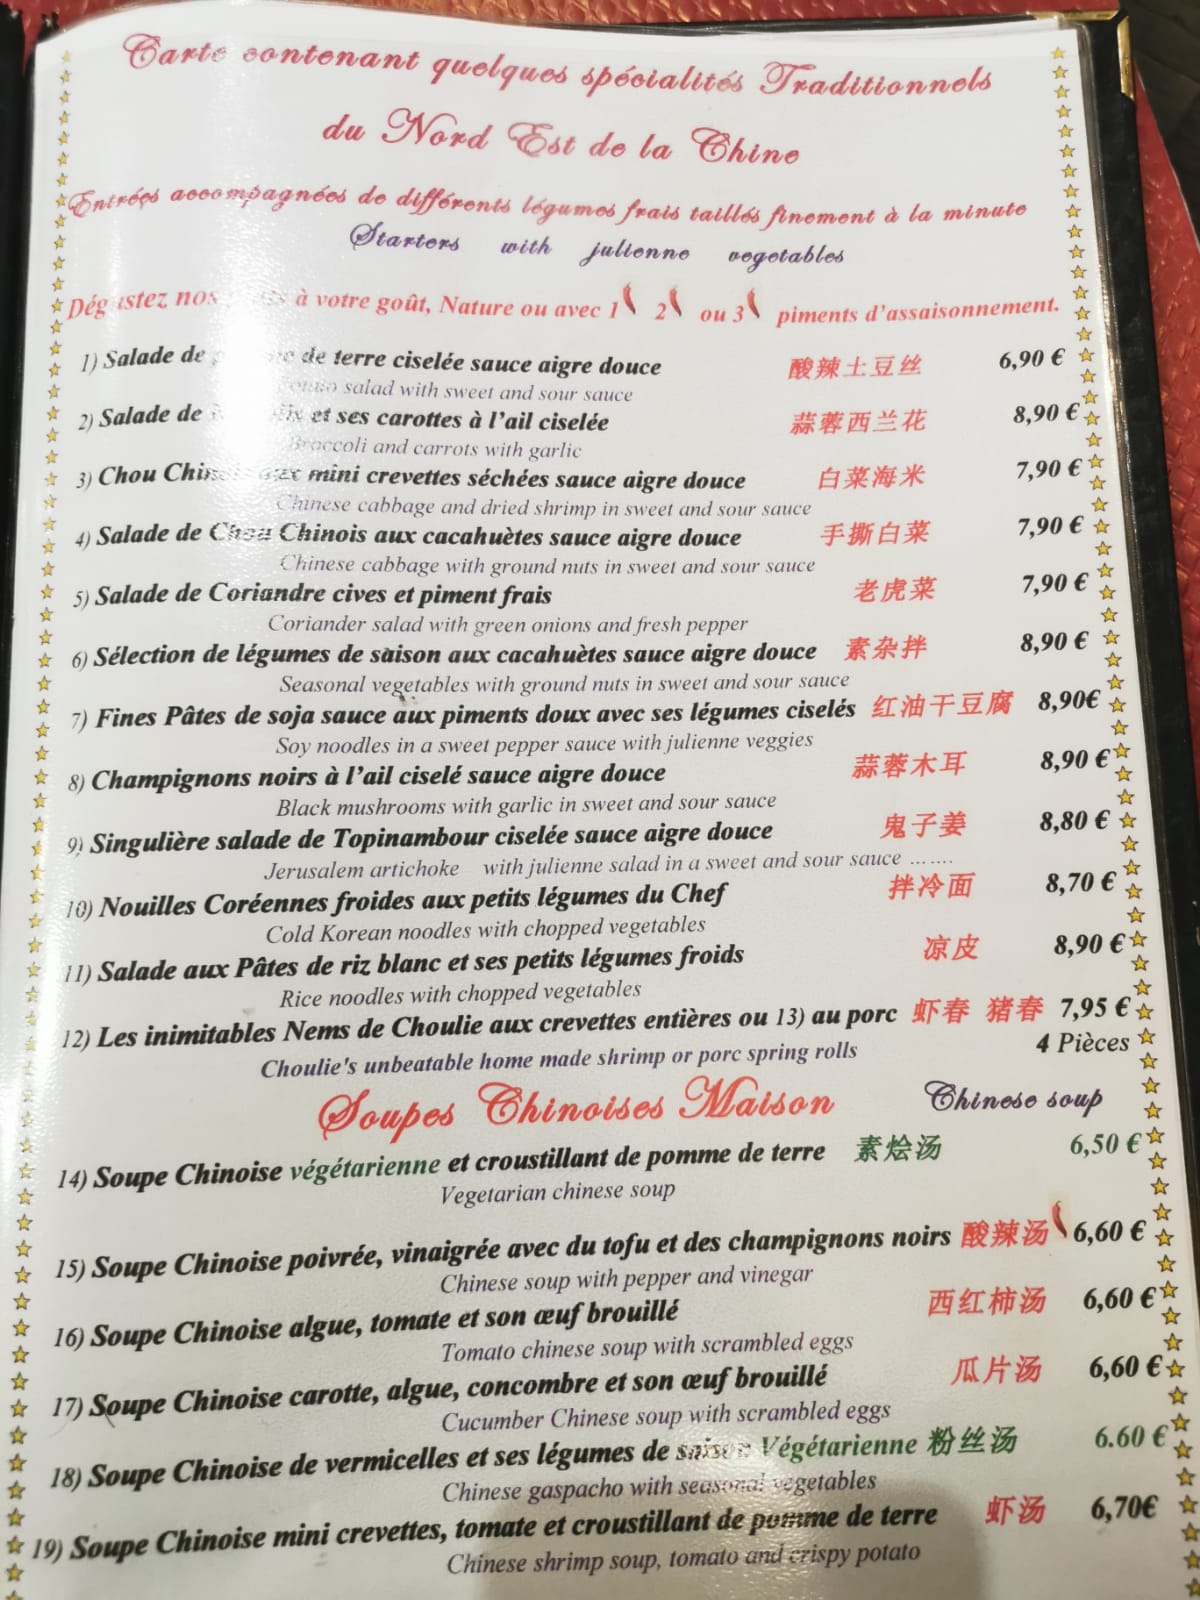 Carte contenant quelques spécialités Traditionnels
du Nord Est de la Chine
Entrées accompagnées de différents légumes frais taillés finement à la minute
Starters with julienne vegetables
Dégustez nos à votre goût, Nature ou avec 1 2 ou 3 piments d'assaisonnement.
1) Salade de de terre ciselée sauce aigre douce 酸辣土豆丝 6,90 €
salad with sweet and sour sauce
2) Salade de et ses carottes à l'ail ciselée 蒜蓉西兰花 8,90 €
Broccoli and carrots with garlic
3) Chou Chinois aux mini crevettes séchées sauce aigre douce 白菜海米 7,90 €
Chinese cabbage and dried shrimp in sweet and sour sauce
4) Salade de Chou Chinois aux cacahuètes sauce aigre douce 手撕白菜 7,90 €
Chinese cabbage with ground nuts in sweet and sour sauce
5) Salade de Coriandre cives et piment frais 老虎菜 7,90 €
Coriander salad with green onions and fresh pepper
6) Sélection de légumes de saison aux cacahuètes sauce aigre douce 素杂拌 8,90 €
Seasonal vegetables with ground nuts in sweet and sour sauce
7) Fines Pâtes de soja sauce aux piments doux avec ses légumes ciselés 红油干豆腐 8,90€
Soy noodles in a sweet pepper sauce with julienne veggies
8) Champignons noirs à l'ail ciselé sauce aigre douce 蒜蓉木耳 8,90 €
Black mushrooms with garlic in sweet and sour sauce
9) Singulière salade de Topinambour ciselée sauce aigre douce 鬼子姜 8,80 €
Jerusalem artichoke with julienne salad in a sweet and sour sauce …….
10) Nouilles Coréennes froides aux petits légumes du Chef 拌冷面 8,70 €
Cold Korean noodles with chopped vegetables
11) Salade aux Pâtes de riz blanc et ses petits légumes froids 凉皮 8,90 €
Rice noodles with chopped vegetables
12) Les inimitables Nems de Choulie aux crevettes entières ou 13) au porc 虾春 猪春 7,95 €
4 Pièces
Choulie's unbeatable home made shrimp or porc spring rolls
Soupes Chinoises Maison Chinese soup
14) Soupe Chinoise végétarienne et croustillant de pomme de terre 素烩汤 6,50 €
Vegetarian chinese soup
15) Soupe Chinoise poivrée, vinaigrée avec du tofu et des champignons noirs 酸辣汤 6,60 €
Chinese soup with pepper and vinegar
16) Soupe Chinoise algue, tomate et son œuf brouillé 西红柿汤 6,60 €
Tomato chinese soup with scrambled eggs
17) Soupe Chinoise carotte, algue, concombre et son œuf brouillé 瓜片汤 6,60 €
Cucumber Chinese soup with scrambled eggs
18) Soupe Chinoise de vermicelles et ses légumes de saison Végétarienne 粉丝汤 6.60 €
Chinese gaspacho with seasonal vegetables
19) Soupe Chinoise mini crevettes, tomate et croustillant de pomme de terre 虾汤 6,70€
Chinese shrimp soup, tomato and crispy potato